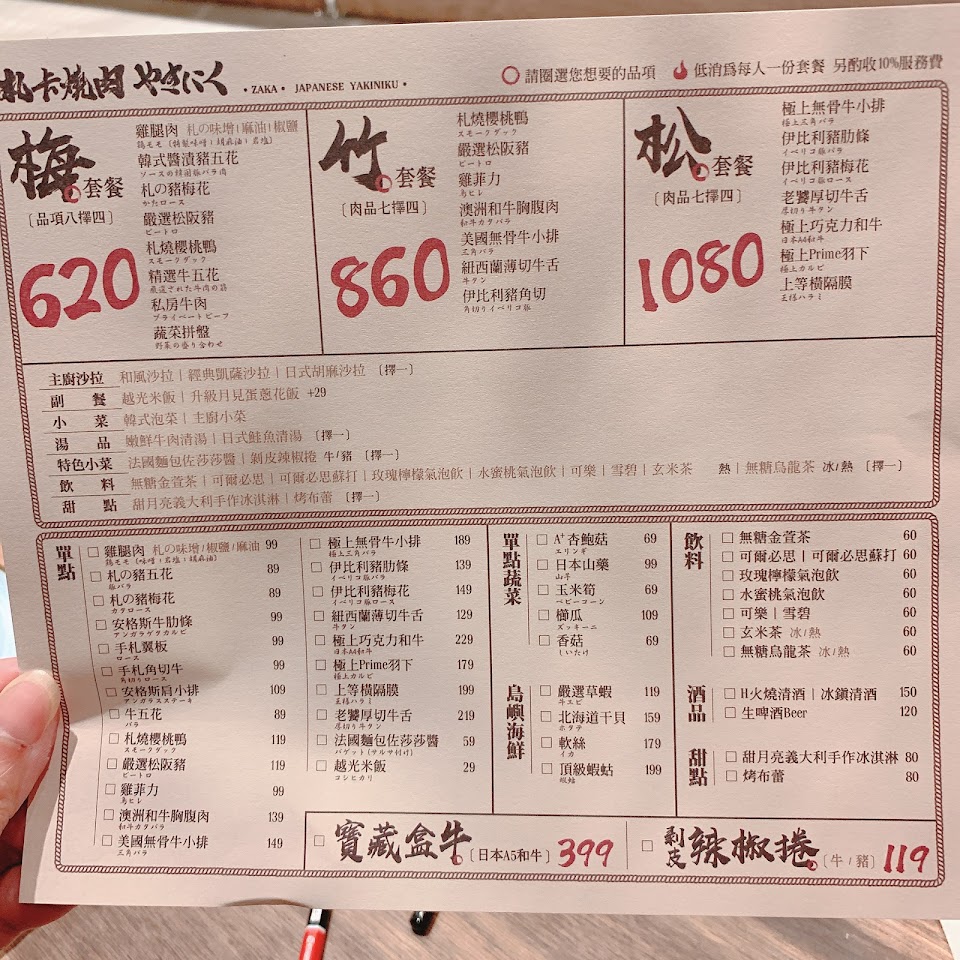 札卡燒肉 やきにく • ZAKA • JAPANESE YAKINIKU •
請圈選您想要的品項 低消為每人一份套餐 另酌收10%服務費
梅套餐
〔品項八擇四〕
620
雞腿肉 札の味增|麻油|椒鹽
韓式醬漬豬五花
札の豬梅花
かたロース
嚴選松阪豬
ピートロ
札燒櫻桃鴨
スモークダック
精選牛五花
私房牛肉
プライベートビーフ
蔬菜拼盤
野菜の盛り合わせ
竹套餐
〔肉品七擇四〕
860
札燒櫻桃鴨
スモークダック
嚴選松阪豬
ピートロ
雞菲力
鳥ヒレ
澳洲和牛胸腹肉
和牛カタバラ
美國無骨牛小排
三角バラ
紐西蘭薄切牛舌
牛タン
伊比利豬角切
角切りイベリコ豚
松套餐
〔肉品七擇四〕
1080
極上無骨牛小排
極上三角バラ
伊比利豬肋條
イベリコ豚バラ
伊比利豬梅花
イベリコ豚ロース
老饕厚切牛舌
厚切り牛タン
極上巧克力和牛
日本A4和牛
極上Prime羽下
極上カルビ
上等橫隔膜
王様ハラミ
主廚沙拉 和風沙拉|經典凱薩沙拉|日式胡麻沙拉 〔擇一〕
副餐 越光米飯|升級月見蛋蔥花飯 +29
小菜 韓式泡菜|主廚小菜
湯品 嫩鮮牛肉清湯|日式鮭魚清湯 〔擇一〕
特色小菜 法國麵包佐莎莎醬|剝皮辣椒捲 牛/豬 〔擇一〕
飲料 無糖金萱茶|可爾必思|可爾必思蘇打|玫瑰檸檬氣泡飲|水蜜桃氣泡飲|可樂|雪碧|玄米茶 熱|無糖烏龍茶 冰/熱 〔擇一〕
甜點 甜月亮義大利手作冰淇淋|烤布蕾 〔擇一〕
單點
雞腿肉 札の味增/椒鹽/麻油 99
鶏モモ(味噌|岩塩|胡麻油)
札の豬五花 89
豚バラ
札の豬梅花 89
カタロース
安格斯牛肋條 99
アンガラゲタカルビ
手札翼板 99
ロース
手札角切牛 99
角切りロース
安格斯肩小排 109
アンガラスステーキ
牛五花 89
バラ
札燒櫻桃鴨 119
スモークダック
嚴選松阪豬 119
ピートロ
雞菲力 99
鳥ヒレ
澳洲和牛胸腹肉 139
和牛カタバラ
美國無骨牛小排 149
三角バラ
極上無骨牛小排 189
極上三角バラ
伊比利豬肋條 139
イベリコ豚バラ
伊比利豬梅花 149
イベリコ豚ロース
紐西蘭薄切牛舌 129
牛タン
極上巧克力和牛 229
日本A4和牛
極上Prime羽下 179
極上カルビ
上等橫隔膜 199
王様ハラミ
老饕厚切牛舌 219
厚切り牛タン
法國麵包佐莎莎醬 59
バゲット(サルサ付け)
越光米飯 29
コシヒカリ
單點蔬菜
A⁺杏鮑菇 69
エリンギ
日本山藥 99
山芋
玉米筍 69
ベビーコーン
櫛瓜 109
ズッキーニ
香菇 69
しいたけ
島嶼海鮮
嚴選草蝦 119
牛エビ
北海道干貝 159
ホタテ
軟絲 179
イカ
頂級蝦蛄 199
蝦蛄
飲料
無糖金萱茶 60
可爾必思|可爾必思蘇打 60
玫瑰檸檬氣泡飲 60
水蜜桃氣泡飲 60
可樂|雪碧 60
玄米茶 冰/熱 60
無糖烏龍茶 冰/熱 60
酒品
H火燒清酒|冰鎮清酒 150
生啤酒Beer 120
甜點
甜月亮義大利手作冰淇淋 80
烤布蕾 80
寶藏盒牛〔日本A5和牛〕 399
剝皮辣椒捲〔牛/豬〕 119